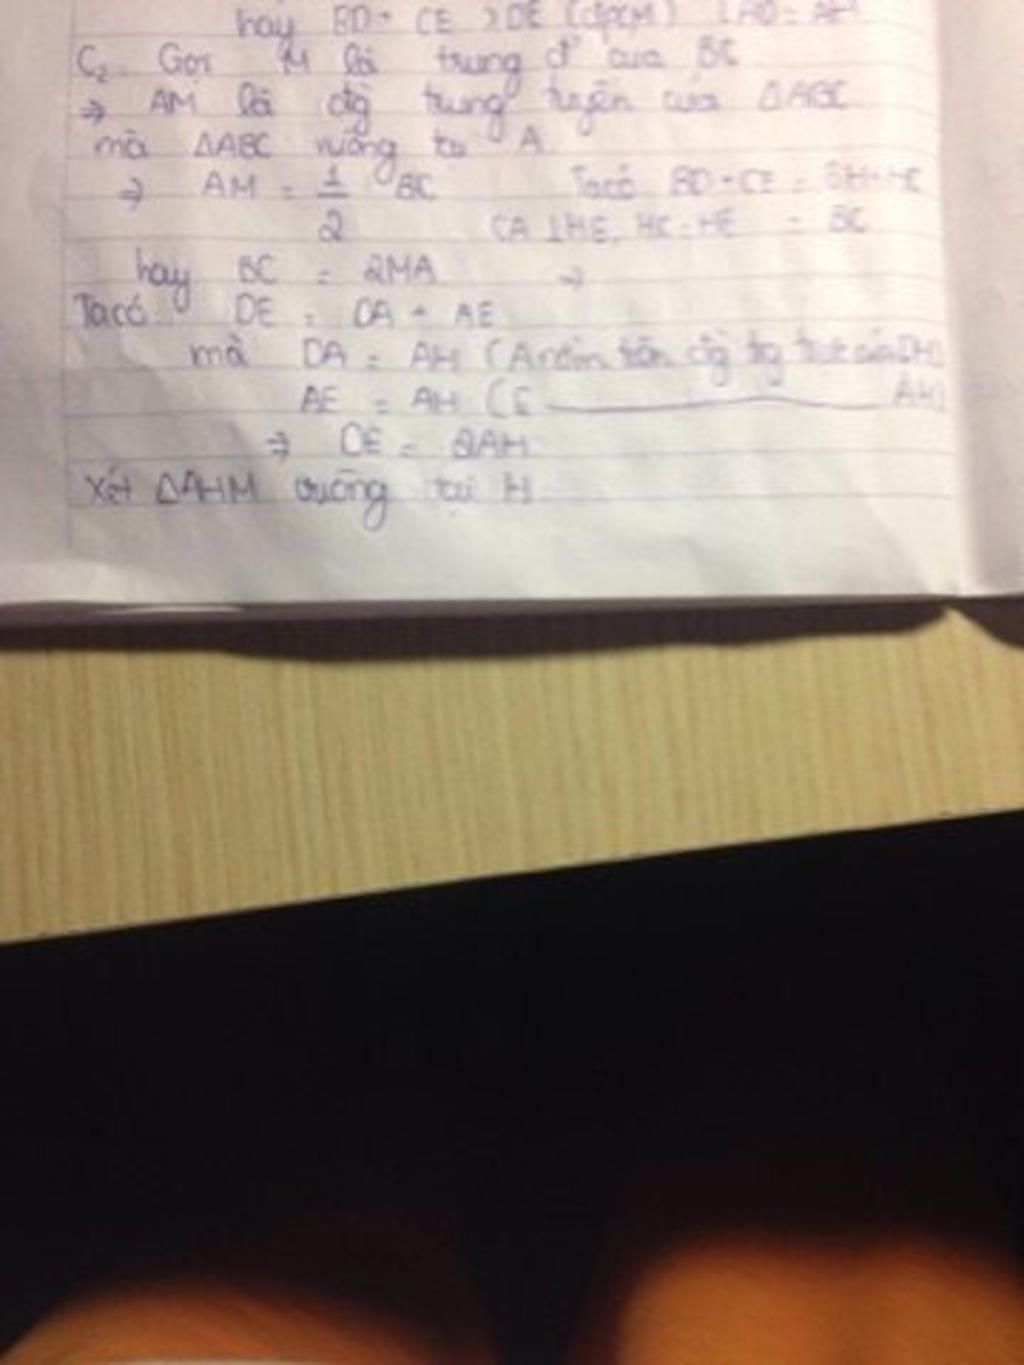 hay BD + CE > DE (đpcm)
C₂. Gọi M là trung đ' của BC
⇒ AM là đg trung tuyến của ΔABC
mà ΔABC vuông tại A
⇒ AM = 1/2 BC Ta có BD + CE = BH + HC
CA ⊥ HE, HC = HE = BC
hay BC = 2MA ⇒
Ta có DE = DA + AE
mà DA = AH (A nằm trên đg trg trực của DH)
AE = AH (E AH)
⇒ DE = 2AH
Xét ΔAHM vuông tại H